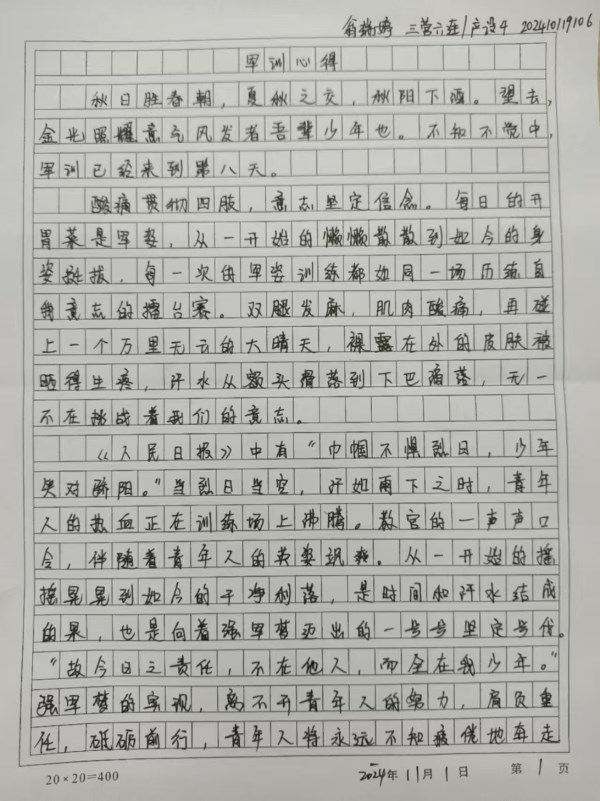 翁瑞婷 三营六连/产设4 20241019106
军训心得
秋日胜春朝，夏秋之交，秋阳下洒。望去，
金光照耀意气风发者吾辈少年也。不知不觉中，
军训已经来到第八天。
酸痛贯彻四肢，意志坚定信念。每日的开
胃菜是军姿，从一开始的懒懒散散到如今的身
姿挺拔，每一次的军姿训练都如同一场历练自
我意志的擂台赛。双腿发麻，肌肉酸痛，再碰
上一个万里无云的大晴天，裸露在外的皮肤被
晒得生疼，汗水从额头滑落到下巴滴落，无一
不在挑战着我们的意志。
《人民日报》中有“巾帼不惧烈日，少年
笑对骄阳。”当烈日当空，汗如雨下之时，青年
人的热血正在训练场上沸腾。教官的一声声口
令，伴随着青年人的英姿飒爽。从一开始的摇
摇晃晃到如今的干净利落，是时间和汗水结成
的果，也是向着强军梦迈出的一步步坚定步伐。
“故今日之责任，不在他人，而全在我少年。”
强军梦的实现，离不开青年人的努力，肩负重
任，砥砺前行，青年人将永远不知疲倦地奔走
20×20=400 2024年11月1日 第1页